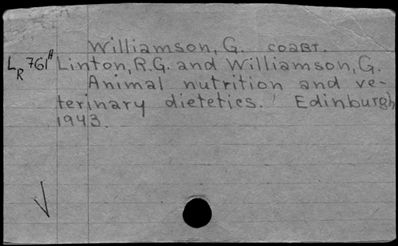 Williamson, G. соавт.
L R 761 A Linton, R.G. and Williamson, G.
Animal nutrition and ve-
terinary dietetics. Edinburgh,
1943.